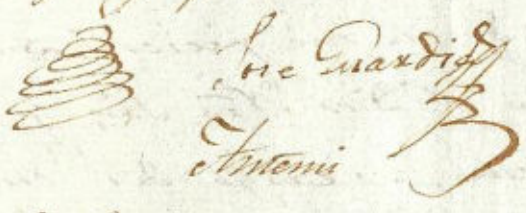 Jose Guardia
Antoni